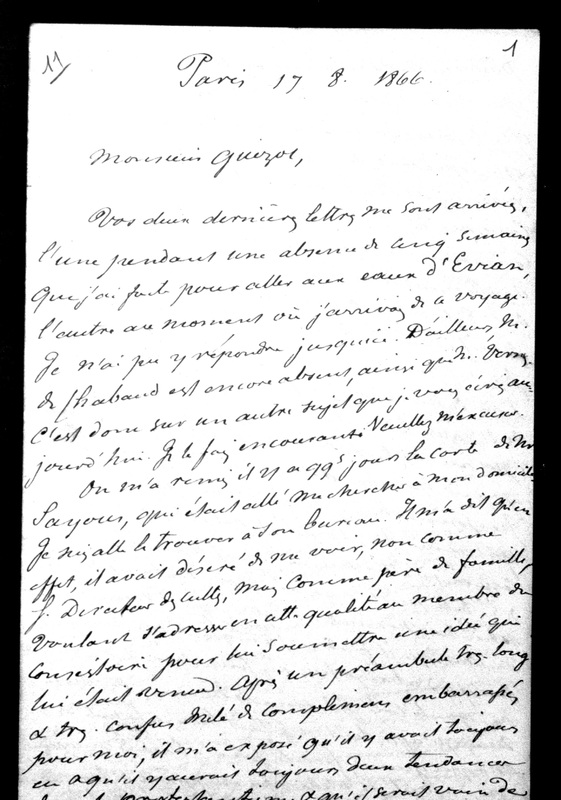 11/
1
Paris 17 8. 1866.
Monsieur Guizot,
Vos deux dernières lettres me sont arrivées,
l'une pendant une absence de cinq semaines
que j'ai faite pour aller aux eaux d'Evian,
l'autre au moment où j'arrivais de ce voyage.
Je n'ai pu y répondre jusqu'ici. D'ailleurs M.
de Chabaud est encore absent, ainsi que M. Vernes.
C'est donc sur un autre sujet que je vous écris au-
jourd'hui. Je le fais en courant. Veuillez m'excuser.
On m'a remis il y a qqs jours la carte de Mr
Sayous, qui était allé me chercher à mon domicile
Je suis allé le trouver à son bureau. Il m'a dit qu'en
effet, il avait désiré de me voir, non comme
s. Directeur des cultes, mais comme père de famille,
voulant s'adresser en cette qualité au membre du
consistoire pour lui soumettre une idée qui
lui était venue. Après un préambule très long
& très confus mêlé de complimens embarrassés
pour moi, il m'a exposé qu'il y avait toujours
eu & qu'il y aurait toujours deux tendances
dans le protestantisme & qu'il serait vain de